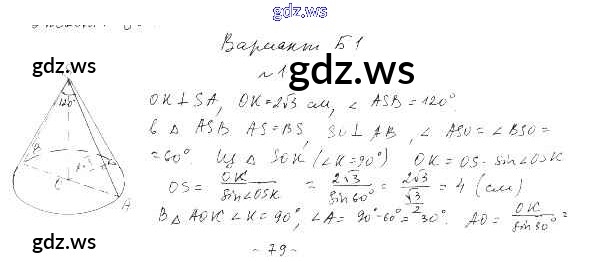 gdz.ws
Вариант Б1
gdz.ws
gdz.ws
№1
120°
OK ⊥ SA, OK = 2√3 см, ∠ ASB = 120°.
В △ ASB AS = BS, SO ⊥ AB, ∠ ASO = ∠ BSO =
= 60°. Из △ SOK (∠K = 90°) OK = OS · sin∠OSK
OS = OK / sin∠OSK = 2√3 / sin60° = 2√3 / (√3/2) = 4 (см)
В △ AOK ∠K = 90°, ∠A = 90° - 60° = 30°. AO = OK / sin30° =
B
K
O
A
gdz.ws
gdz.ws
- 79 -